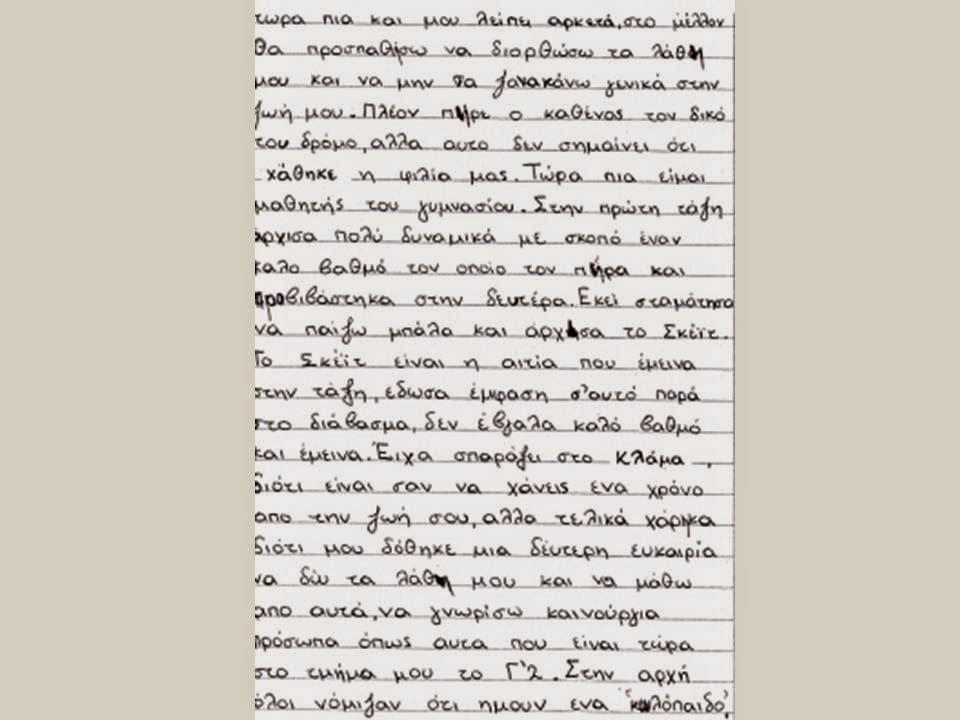 τωρα πια και μου λείπει αρκετά, στο μέλλον
θα προσπαθήσω να διορθώσω τα λάθη
μου και να μην τα ξανακάνω γενικά στην
ζωή μου. Πλέον πήρε ο καθένας τον δικό
του δρόμο, αλλα αυτο δεν σημαίνει ότι
χάθηκε η φιλία μας. Τώρα πια είμαι
μαθητής του γυμνασίου. Στην πρώτη τάξη
άρχισα πολύ δυναμικά με σκοπό έναν
καλο βαθμό τον οποίο τον πήρα και
προβιβάστηκα στην δευτέρα. Εκεί σταμάτησα
να παίζω μπάλα και άρχισα το Σκέϊτ.
Το Σκέϊτ είναι η αιτία που έμεινα
στην τάξη, έδωσα έμφαση σ'αυτό παρά
στο διάβασμα, δεν έβγαλα καλό βαθμό
και έμεινα. Έιχα σπαράξει στο κλάμα,
διότι είναι σαν να χάνεις ενα χρόνο
απο την ζωή σου, αλλα τελικά χάρηκα
διότι μου δόθηκε μια δεύτερη ευκαιρία
να δω τα λάθη μου και να μάθω
απο αυτά, να γνωρίσω καινούργια
πρόσωπα όπως αυτα που είναι τώρα
στο τμήμα μου το Γ'2. Στην αρχή
όλοι νόμιζαν ότι ημουν ενα "κωλόπαιδο",